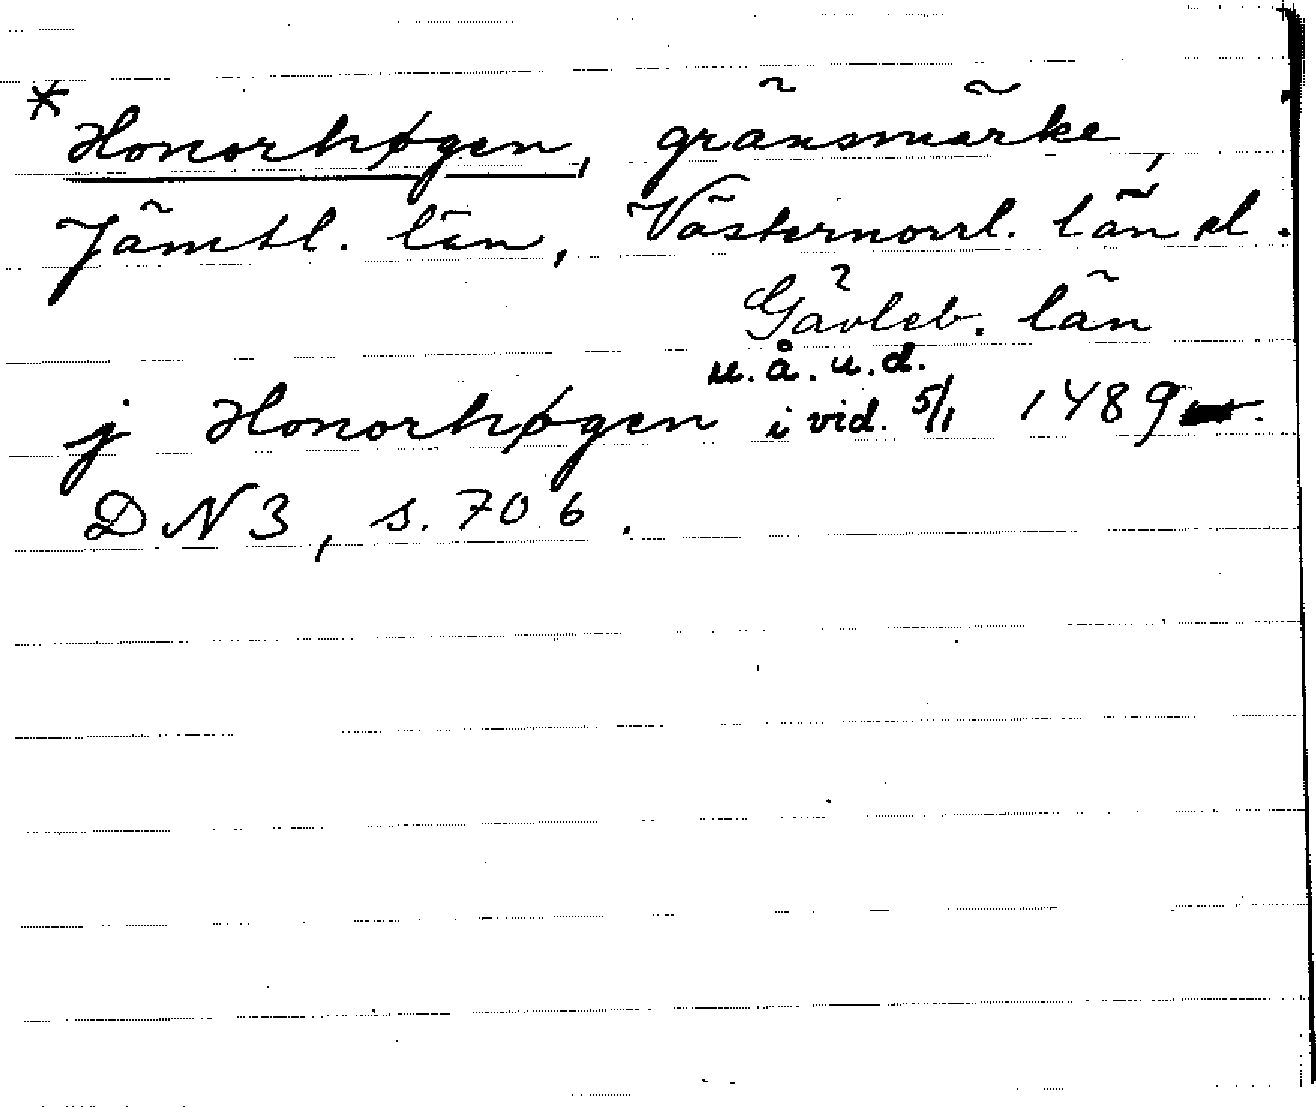 * Honorhøgen, gränsmärke,
Jämtl. län, Västernorrl. län el.
Gävleb. län
u.å.u.d.
j Honorhøgen i vid. 5/1 1489
DN 3, s. 706.